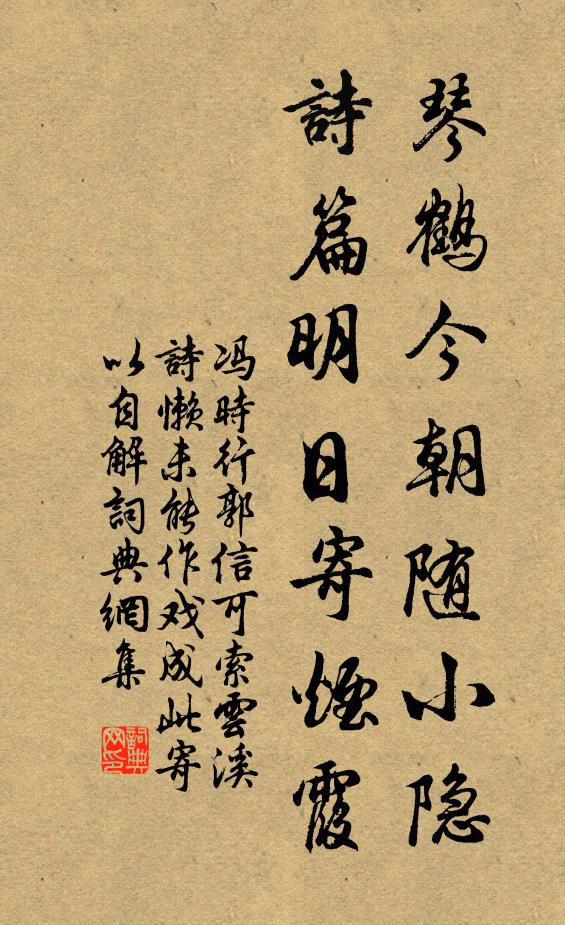 琴鹤今朝随小隐
詩篇明日寄煙霞
冯時行郭信可索雲溪
詩懒未能作戏成此寄
以自解詞典網集
詞典
网印